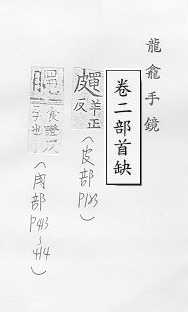 龍龕手鏡
卷二部首缺
羊正
皮反
(皮部P123)
食證反
子也
(肉部P413~414)